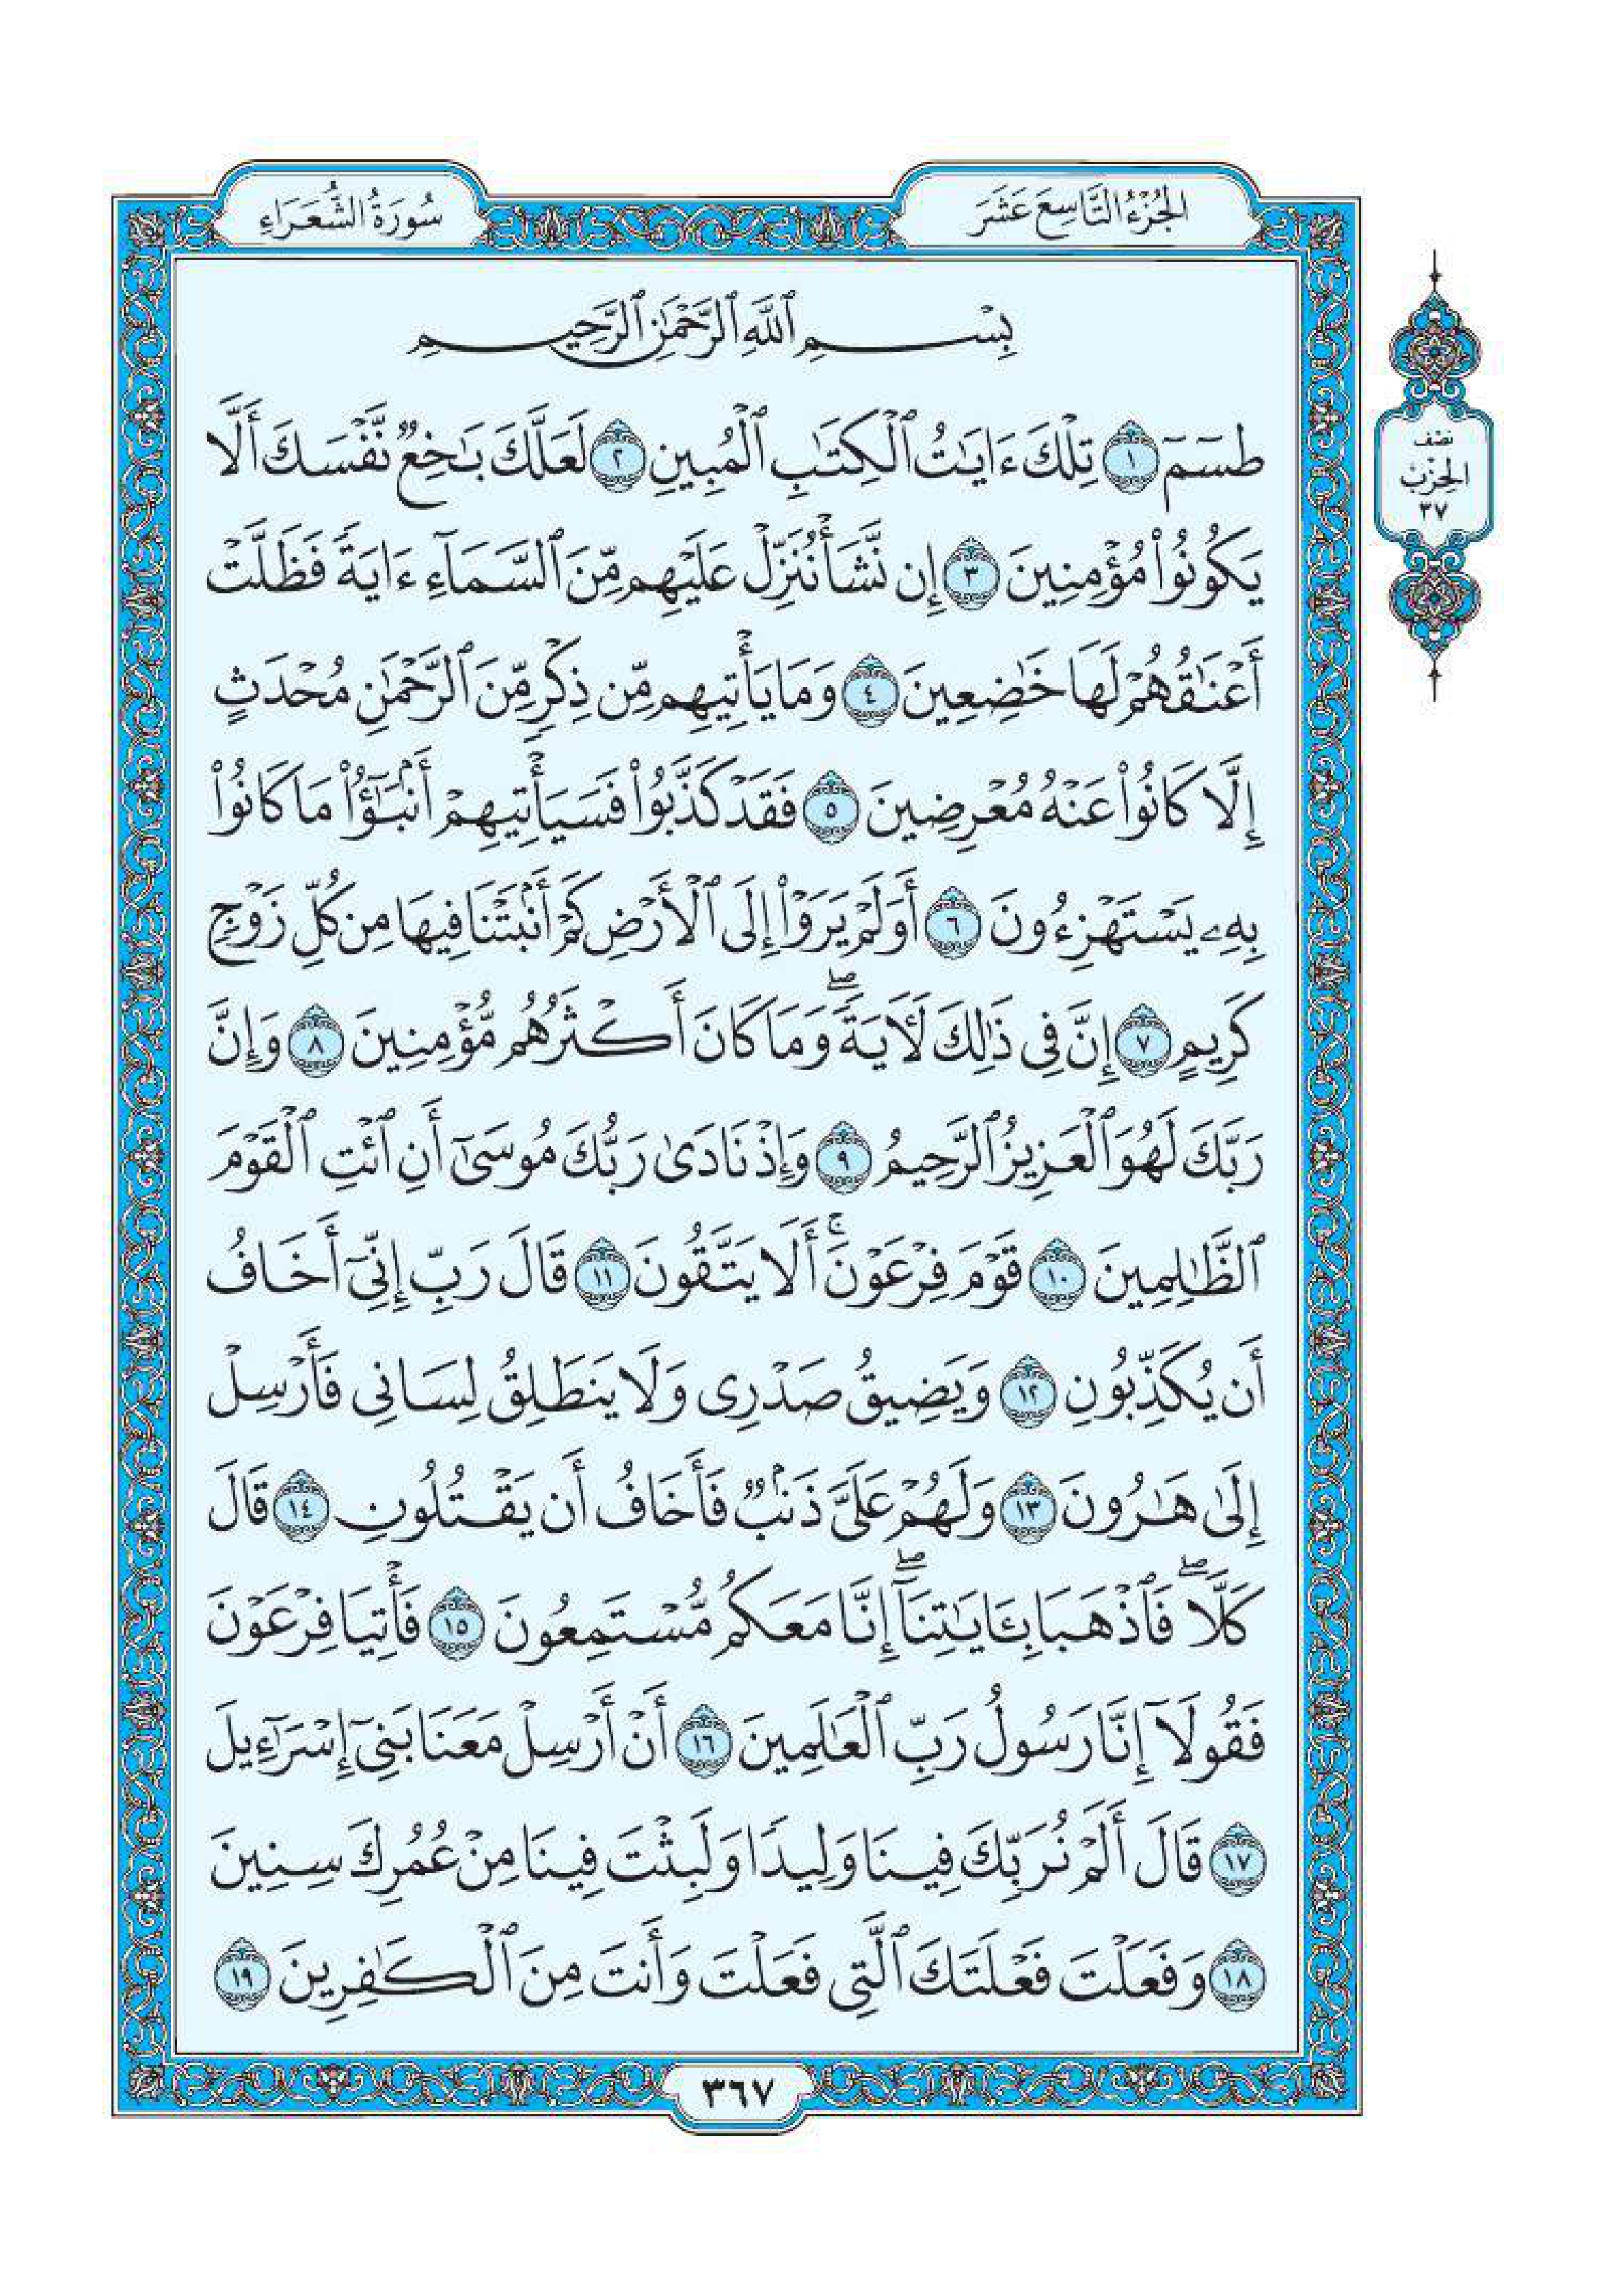 الجُزْءُ التَّاسِعَ عَشَرَ
سُورَةُ الشُّعَرَاءِ
بِسْمِ ٱللَّهِ ٱلرَّحْمَٰنِ ٱلرَّحِيمِ
طسٓمٓ ١ تِلْكَ ءَايَٰتُ ٱلْكِتَٰبِ ٱلْمُبِينِ ٢ لَعَلَّكَ بَٰخِعٌ نَّفْسَكَ أَلَّا
يَكُونُوا۟ مُؤْمِنِينَ ٣ إِن نَّشَأْ نُنَزِّلْ عَلَيْهِم مِّنَ ٱلسَّمَآءِ ءَايَةً فَظَلَّتْ
أَعْنَٰقُهُمْ لَهَا خَٰضِعِينَ ٤ وَمَا يَأْتِيهِم مِّن ذِكْرٍ مِّنَ ٱلرَّحْمَٰنِ مُحْدَثٍ
إِلَّا كَانُوا۟ عَنْهُ مُعْرِضِينَ ٥ فَقَدْ كَذَّبُوا۟ فَسَيَأْتِيهِمْ أَنۢبَٰٓؤُا۟ مَا كَانُوا۟
بِهِۦ يَسْتَهْزِءُونَ ٦ أَوَلَمْ يَرَوْا۟ إِلَى ٱلْأَرْضِ كَمْ أَنۢبَتْنَا فِيهَا مِن كُلِّ زَوْجٍ
كَرِيمٍ ٧ إِنَّ فِى ذَٰلِكَ لَءَايَةً ۖ وَمَا كَانَ أَكْثَرُهُم مُّؤْمِنِينَ ٨ وَإِنَّ
رَبَّكَ لَهُوَ ٱلْعَزِيزُ ٱلرَّحِيمُ ٩ وَإِذْ نَادَىٰ رَبُّكَ مُوسَىٰٓ أَنِ ٱئْتِ ٱلْقَوْمَ
ٱلظَّٰلِمِينَ ١٠ قَوْمَ فِرْعَوْنَ ۚ أَلَا يَتَّقُونَ ١١ قَالَ رَبِّ إِنِّىٓ أَخَافُ
أَن يُكَذِّبُونِ ١٢ وَيَضِيقُ صَدْرِى وَلَا يَنطَلِقُ لِسَانِى فَأَرْسِلْ
إِلَىٰ هَٰرُونَ ١٣ وَلَهُمْ عَلَىَّ ذَنۢبٌ فَأَخَافُ أَن يَقْتُلُونِ ١٤ قَالَ
كَلَّا ۖ فَٱذْهَبَا بِـَٔايَٰتِنَآ ۖ إِنَّا مَعَكُم مُّسْتَمِعُونَ ١٥ فَأْتِيَا فِرْعَوْنَ
فَقُولَآ إِنَّا رَسُولُ رَبِّ ٱلْعَٰلَمِينَ ١٦ أَنْ أَرْسِلْ مَعَنَا بَنِىٓ إِسْرَٰٓءِيلَ
١٧ قَالَ أَلَمْ نُرَبِّكَ فِينَا وَلِيدًا وَلَبِثْتَ فِينَا مِنْ عُمُرِكَ سِنِينَ
١٨ وَفَعَلْتَ فَعْلَتَكَ ٱلَّتِى فَعَلْتَ وَأَنتَ مِنَ ٱلْكَٰفِرِينَ ١٩
نِصْف
الحِزْبْ
٣٧
٣٦٧